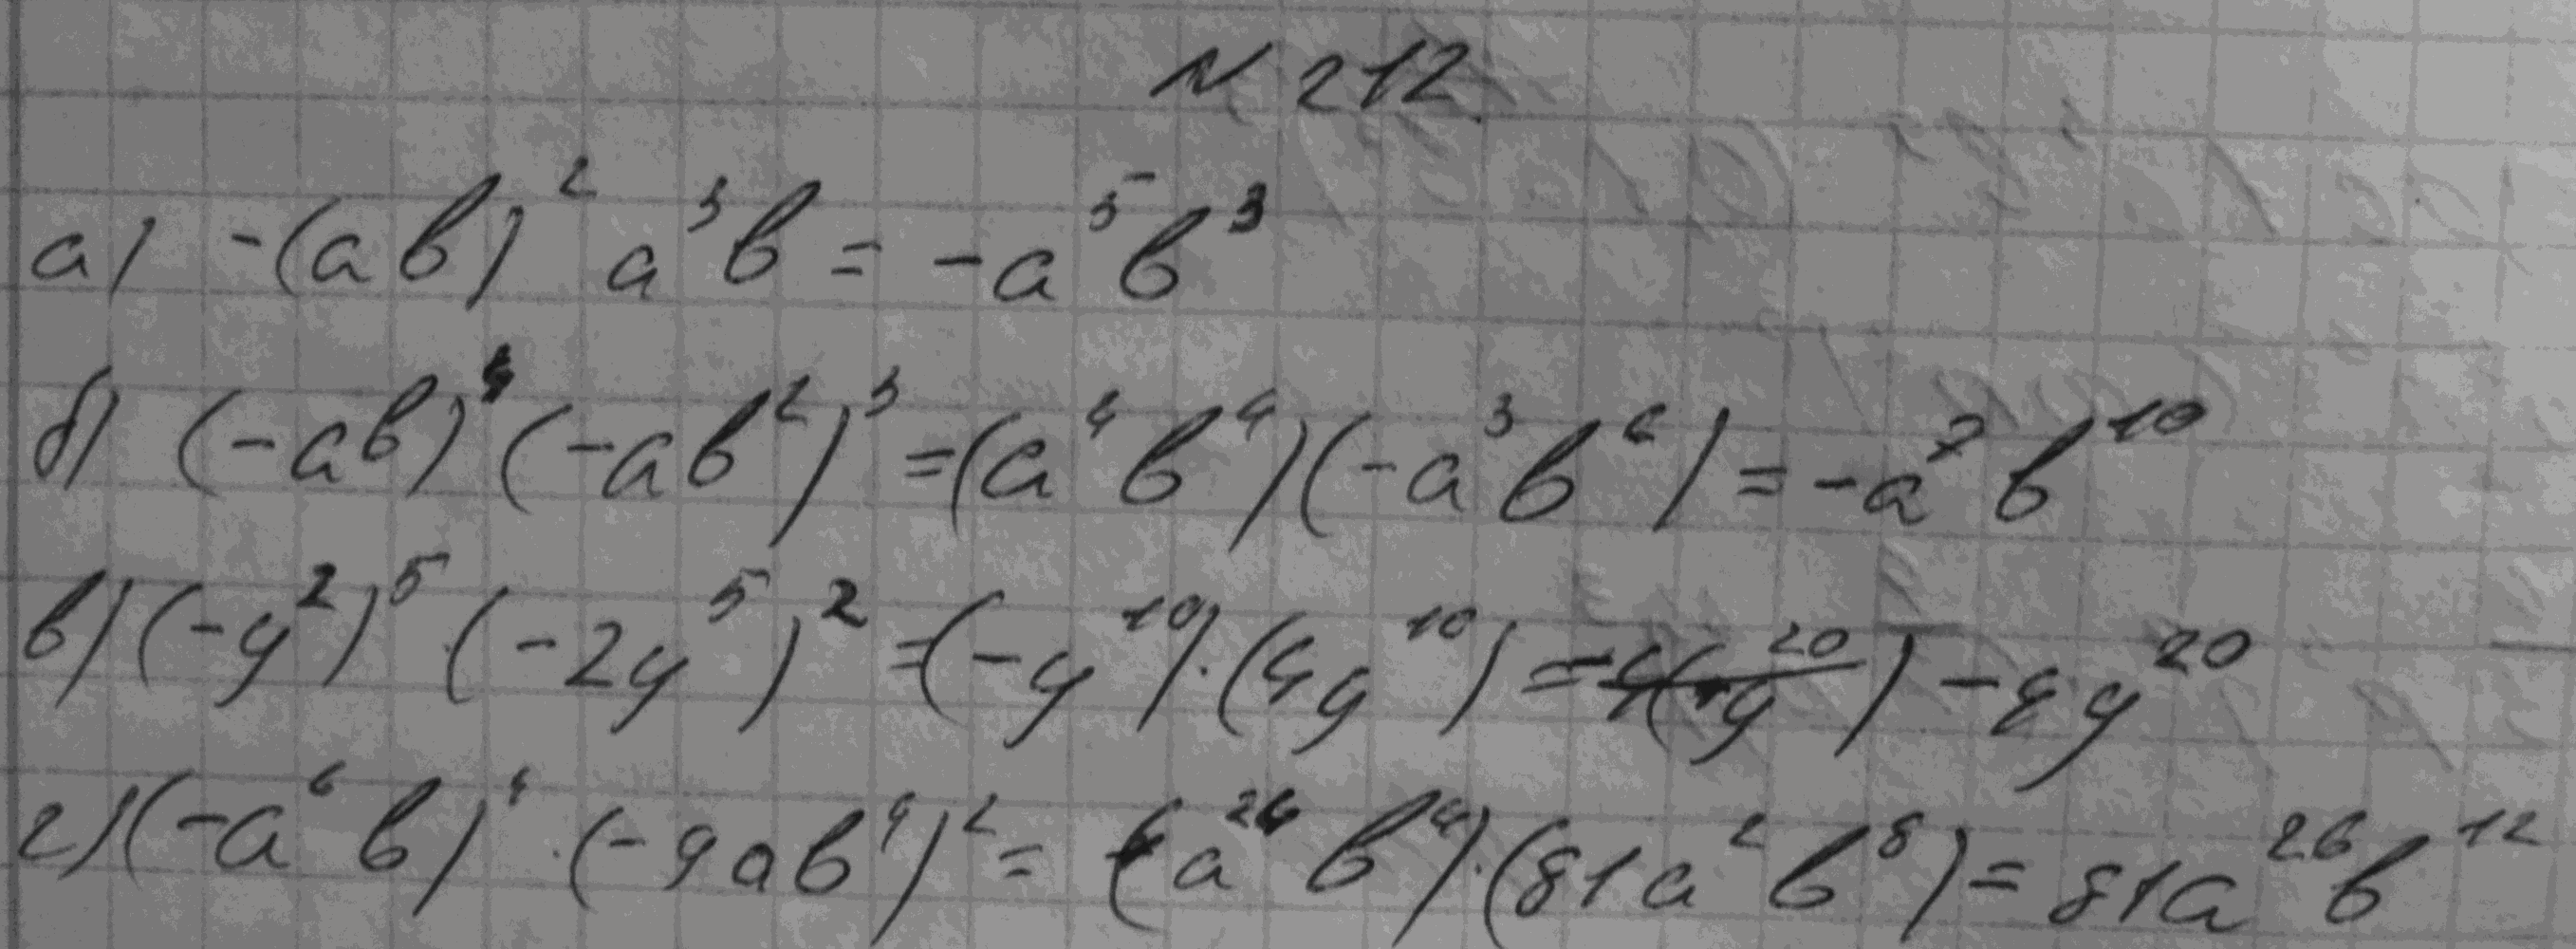 № 212
а) -(ab)² a³b = -a⁵b³
б) (-ab)⁴ (-ab²)³ = (a⁴b⁴)(-a³b⁶) = -a⁷b¹⁰
в) (-y²)⁵ · (-2y⁵)² = (-y¹⁰) · (4y¹⁰) = -4y²⁰
г) (-a⁶b)⁴ · (-9ab⁴)² = (a²⁴b⁴) · (81a²b⁸) = 81a²⁶b¹²